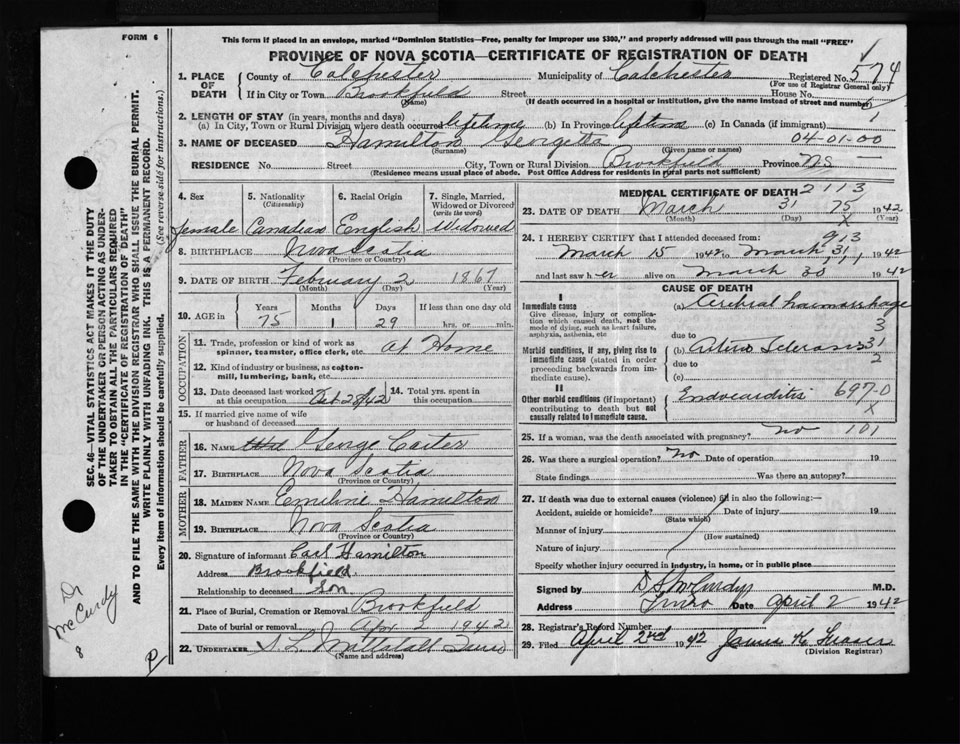 FORM 6
This form if placed in an envelope, marked "Dominion Statistics—Free, penalty for improper use $300," and properly addressed will pass through the mail "FREE"
PROVINCE OF NOVA SCOTIA—CERTIFICATE OF REGISTRATION OF DEATH
1. PLACE OF DEATH
County of Colchester Municipality of Colchester Registered No. 574
(For use of Registrar General only)
If in City or Town Brookfield Street House No.
(Name) (If death occurred in a hospital or institution, give the name instead of street and number)
2. LENGTH OF STAY (in years, months and days) 1
(a) In City, Town or Rural Division where death occurred lifetime (b) In Province lifetime (c) In Canada (if immigrant)
3. NAME OF DECEASED Hamilton Georgetta 04-01-00
(Surname) (Given name or names)
RESIDENCE No. Street City, Town or Rural Division Brookfield Province N.S.
(Residence means usual place of abode. Post Office Address for Residents in rural parts not sufficient)
4. Sex female
5. Nationality (Citizenship) Canadian
6. Racial Origin English
7. Single, Married, Widowed or Divorced (write the word) Widowed
8. BIRTHPLACE Nova Scotia
(Province or Country)
9. DATE OF BIRTH February 2 1867
(Month) (Day)
10. AGE in Years 75 Months 1 Days 29 If less than one day old hrs. or min.
OCCUPATION
11. Trade, profession or kind of work as spinner, teamster, office clerk, etc. at Home
12. Kind of industry or business, as cotton-mill, lumbering, bank, etc.
13. Date deceased last worked at this occupation
14. Total yrs. spent in this occupation
15. If married give name of wife or husband of deceased
FATHER
16. NAME George Carter
17. BIRTHPLACE Nova Scotia
(Province or Country)
MOTHER
18. MAIDEN NAME Emeline Hamilton
19. BIRTHPLACE Nova Scotia
(Province or Country)
20. Signature of informant Carl Hamilton
Address Brookfield
Relationship to deceased Son
21. Place of Burial, Cremation or Removal Brookfield
Date of burial or removal Apr 2 1942
22. UNDERTAKER S. L. Mattatall Truro
(Name and address)
MEDICAL CERTIFICATE OF DEATH 2113
23. DATE OF DEATH March 31 75 1942
(Month) (Day) X (Year)
24. I HEREBY CERTIFY that I attended deceased from: 913
March 15 1942 to March 31 1942
and last saw her alive on March 30 1942
CAUSE OF DEATH
I
Immediate cause
Give disease, injury or complication which caused death, not the mode of dying, such as heart failure, asphyxia, asthenia, etc
(a) Cerebral haemorrhage
3
due to
Morbid conditions, if any, giving rise to immediate cause (stated in order proceeding backwards from immediate cause).
(b) Arterio Sclerosis 31
due to 2
(c)
II
Other morbid conditions (if important) contributing to death but not causally related to immediate cause.
Endocarditis 697-0
X
25. If a woman, was the death associated with pregnancy? no 101
26. Was there a surgical operation? No Date of operation 19
State findings Was there an autopsy?
27. If death was due to external causes (violence) fill in also the following:—
Accident, suicide or homicide? Date of injury 19
(State which)
Manner of injury
(How sustained)
Nature of injury
Specify whether injury occurred in industry, in home, or in public place
Signed by D S McCurdy M.D.
Address Truro Date April 2 1942
28. Registrar's Record Number
29. Filed April 2nd 1942 James K Fraser
(Division Registrar)
SEC. 46—VITAL STATISTICS ACT MAKES IT THE DUTY
OF THE UNDERTAKER OR PERSON ACTING AS UNDER-
TAKER TO OBTAIN ALL THE PARTICULARS REQUIRED
IN THE "CERTIFICATE OF REGISTRATION OF DEATH"
AND TO FILE THE SAME WITH THE DIVISION REGISTRAR WHO SHALL ISSUE THE BURIAL PERMIT.
WRITE PLAINLY WITH UNFADING INK. THIS IS A PERMANENT RECORD.
Every item of information should be carefully supplied. (See reverse side for instructions.)
Dr McCurdy
8
P